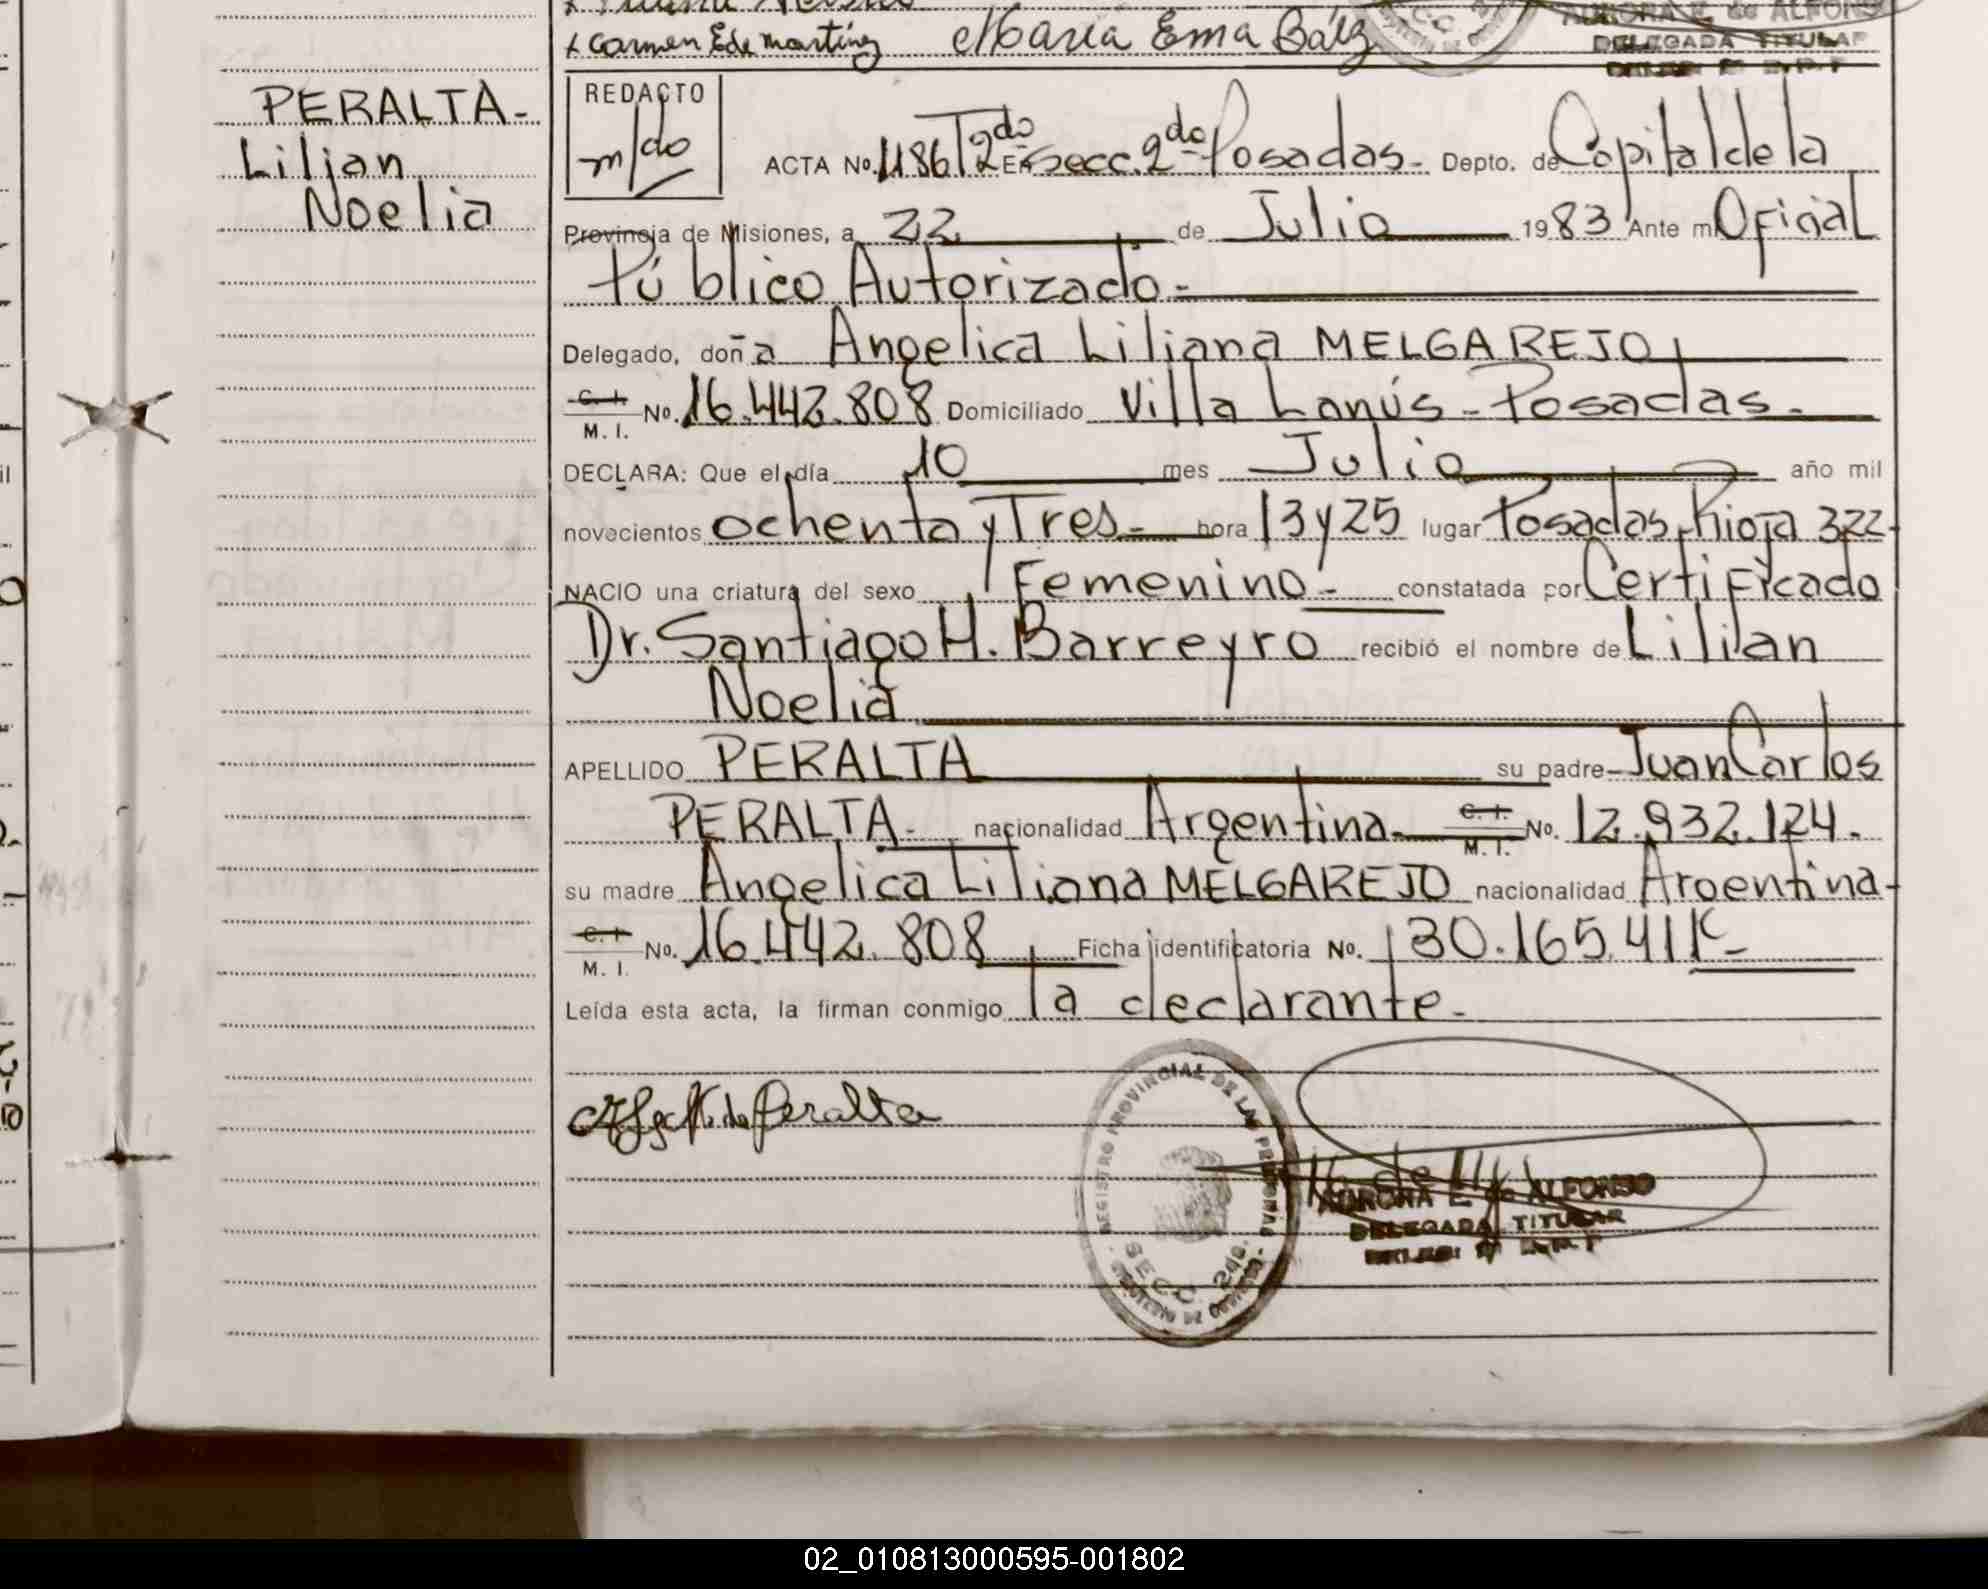 Carmen E de Martínez María Ema Báez
AURORA E. de ALFONSO
DELEGADA TITULAR
PERALTA-
Lilian
Noelia
REDACTO
m/do
ACTA No. 1186 T 2do En secc. 2do Posadas- Depto. de Capital de la
Provincia de Misiones, a 22 de Julio 1983 Ante mi Oficial
Público Autorizado-
Delegado, doña Angelica Liliana MELGAREJO
C. I.
M. I. No. 16.442.808 Domiciliado Villa Lanús-Posadas-
DECLARA: Que el día 10 mes Julio año mil
novecientos ochenta y Tres- hora 13 y 25 lugar Posadas, Rioja 322-
NACIO una criatura del sexo Femenino- constatada por Certificado
Dr. Santiago H. Barreyro recibió el nombre de Lilian
Noelia
APELLIDO PERALTA su padre Juan Carlos
PERALTA- nacionalidad Argentina- C. I.
M. I. No. 12.932.124.
su madre Angelica Liliana MELGAREJO nacionalidad Argentina-
C. I
M. I. No. 16.442.808 Ficha identificatoria No. 130.165.411
Leída esta acta, la firman conmigo la declarante-
de Peralta
REGISTRO PROVINCIAL DE LAS PERSONAS
SECC. 2da.
AURORA E. de ALFONSO
DELEGADA TITULAR
02_010813000595-001802